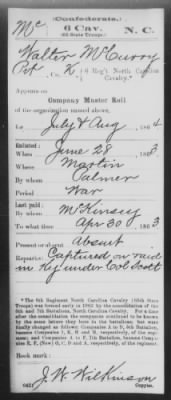 Mc (Confederate.) 
6 Cav. N. C.
(65 State Troops.)
Walter McCurry
Pvt, Co. K, 6 Reg't North Carolina Cavalry.*
Appears on
Company Muster Roll
of the organization named above,
for July & Aug, 1864
Enlisted:
When June 28, 1863
Where Martin
By whom Palmer
Period War
Last paid:
By whom McKinsey
To what time Apr 30, 1863
Present or absent Absent
Remarks: Captured on raid
in Ky under Col Scott
*The 6th Regiment North Carolina Cavalry (65th State
Troops) was formed in
6th and 7th Battalions, North Carolina Cavalry. For a time
after the consolidation the companies continued to be known
by the same letters they bore in the battalions, but were
finally changed as follows: Companies A to
Book mark:
J. W. Wilkinson
(642) Copyist.